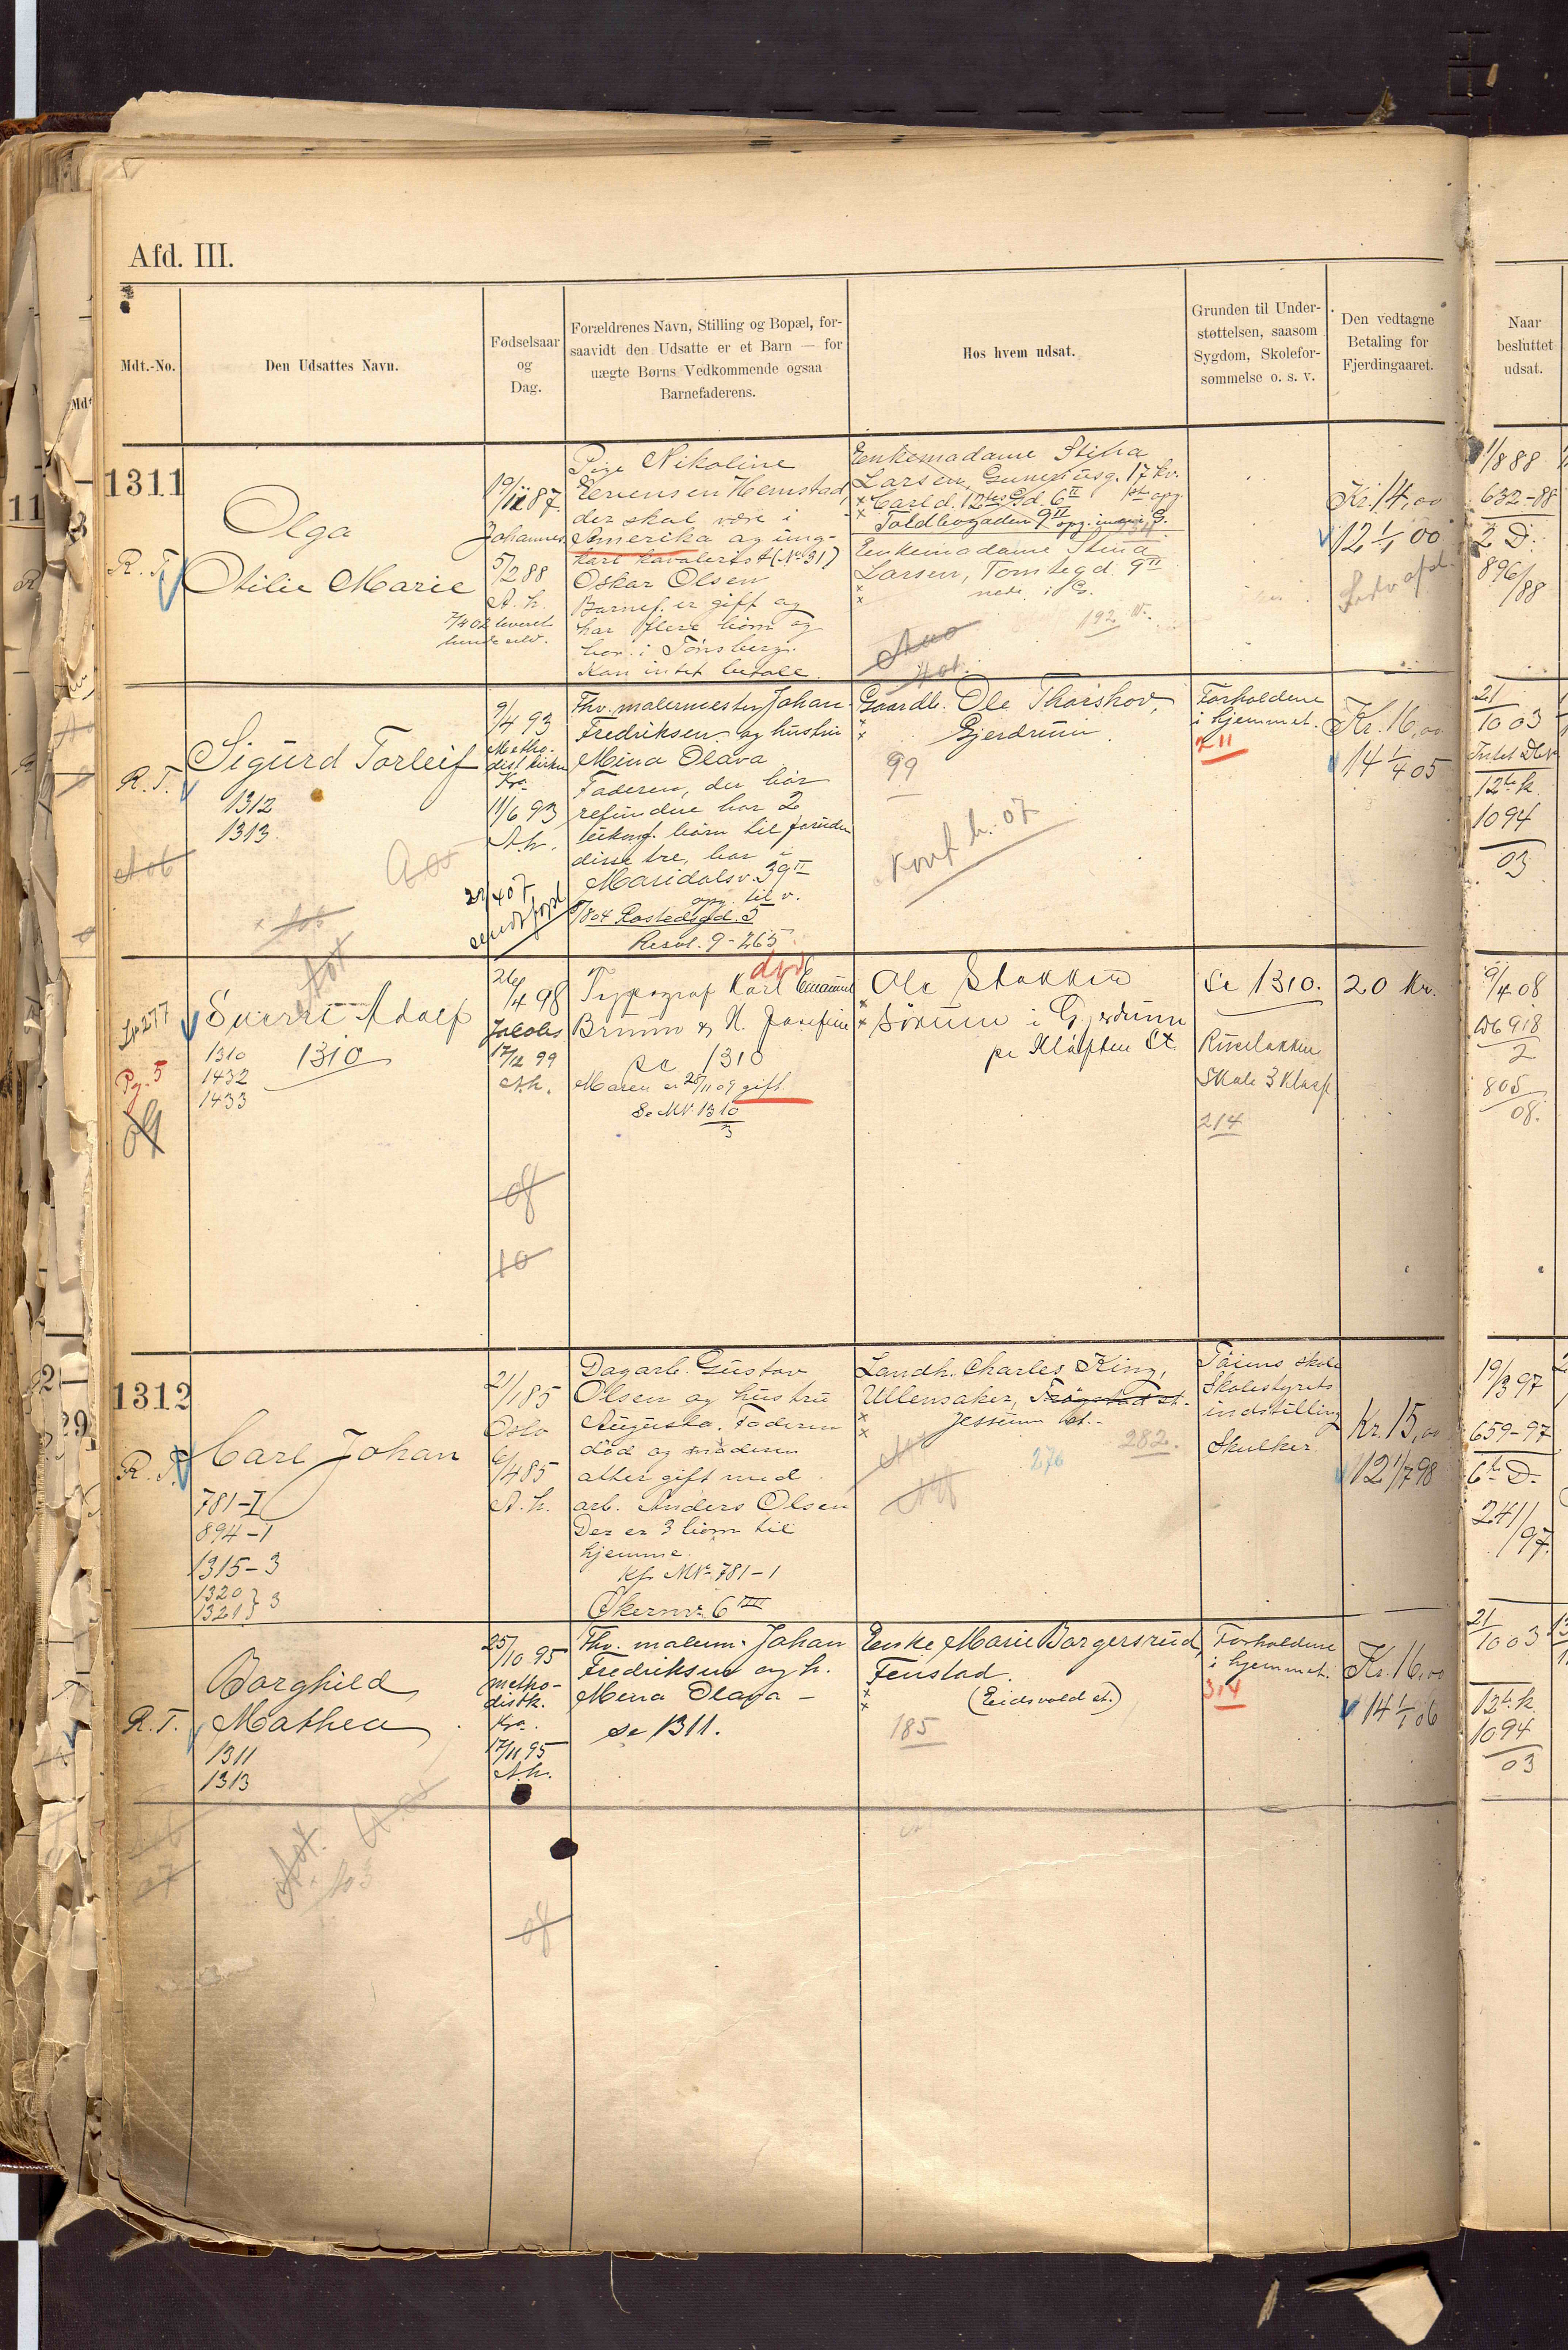 Afd. III.
Mdt.-No.
Den Udsattes Navn.
Fødselsaar
og
Dag.
Forældrenes Navn, Stilling og Bopæl, for-
saavidt den Udsatte er et Barn — for
uægte Børns Vedkommende ogsaa
Barnefaderens.
Hos hvem udsat.
Grunden til Under-
støttelsen, saasom
Sygdom, Skolefor-
sømmelse o. s. v.
Den vedtagne
Betaling for
Fjerdingaaret.
Naar
besluttet
udsat.
1311
R. T.
Olga
Otilie Marie
19/11 87.
Johannes
5/2 88
A. h.
Pige Nikoline
Evensen Hemstad,
der skal være i
Amerika og ung-
karl kavalerist (No 31)
Oskar Olsen
Barnef. er gift og
har flere børn og
bor i Tønsberg.
Kan intet betale.
Enkemadame Stina
Larsen, 17 kv.
Toldbogaden 9 II
Enkemadame Stina
Larsen, Tomtegd. 9 II
nede i G.
192
Kr. 14,00
12 1/1 00
1/8 88
632-88
2 D.
896/88
R. T.
Sigurd Torleif
1312
1313
9/4 93
Metho-
dist kirken
Kra.
11/6 93
A. h.
Thv. malermester Johan
Fredriksen og hustru
Mina Olava
Faderen, der bør
refundere har 2
ukonf. børn til foruden
disse tre, bor i
Maridalsv. 39 II
opg. til v.
Rostedsgd. 5
Resol. 9-265
Gaardb. Ole Thorshov,
Gjerdrum.
99
Konf. h. 07
Forholdene
i hjemmet.
211
Kr. 16,00
14 1/4 05
21/10 03
12te k.
1094/03
277
Pg. 5
Sverre Adolf
1310 1310
1432
1433
26/4 98
Jacobs
17/12 99
A. h.
død
Typograf Karl Emanuel
Bruun & H. Josefine
se 1310
Moren er 28/11 09 gift.
Se MN 1310/3
Ole Stokken
Sørum i Gjerdrum
pr Kløften St.
Se 1310.
Ruseløkken
Skole 3 Klasse
214
20 Kr.
9/4 08
2
805/08.
1312
R. T.
Carl Johan
781-I
894-1
1315-3
1320
1321 } 3
21/1 85
Oslo
6/4 85
A. h.
Dagarb. Gustav
Olsen og hustru
Augusta. Faderen
død og moderen
atter gift med
arb. Anders Olsen
Der er 3 børn til
hjemme.
Kfr MN 781-1
Økernv. 6 III
Landh. Charles King,
Ullensaker, Trøgstad st.
Jessum st.
276
282.
Tøiens skole
Skolestyrets
indstilling
Skulker.
Kr. 15,00
12 1/7 98
19/3 97
659-97
6te D.
241/97.
R. T.
Borghild
Mathea
1311
1313
25/10 95
metho-
distk.
Kra.
17/11 95
A. h.
Thv. malerm. Johan
Fredriksen og h.
Mina Olava —
se 1311.
Enke Marie Borgersrud,
Fenstad.
(Eidsvold st.)
185
Forholdene
i hjemmet.
314
Kr. 16,00
14 1/1 06
21/10 03
12te k.
1094/03